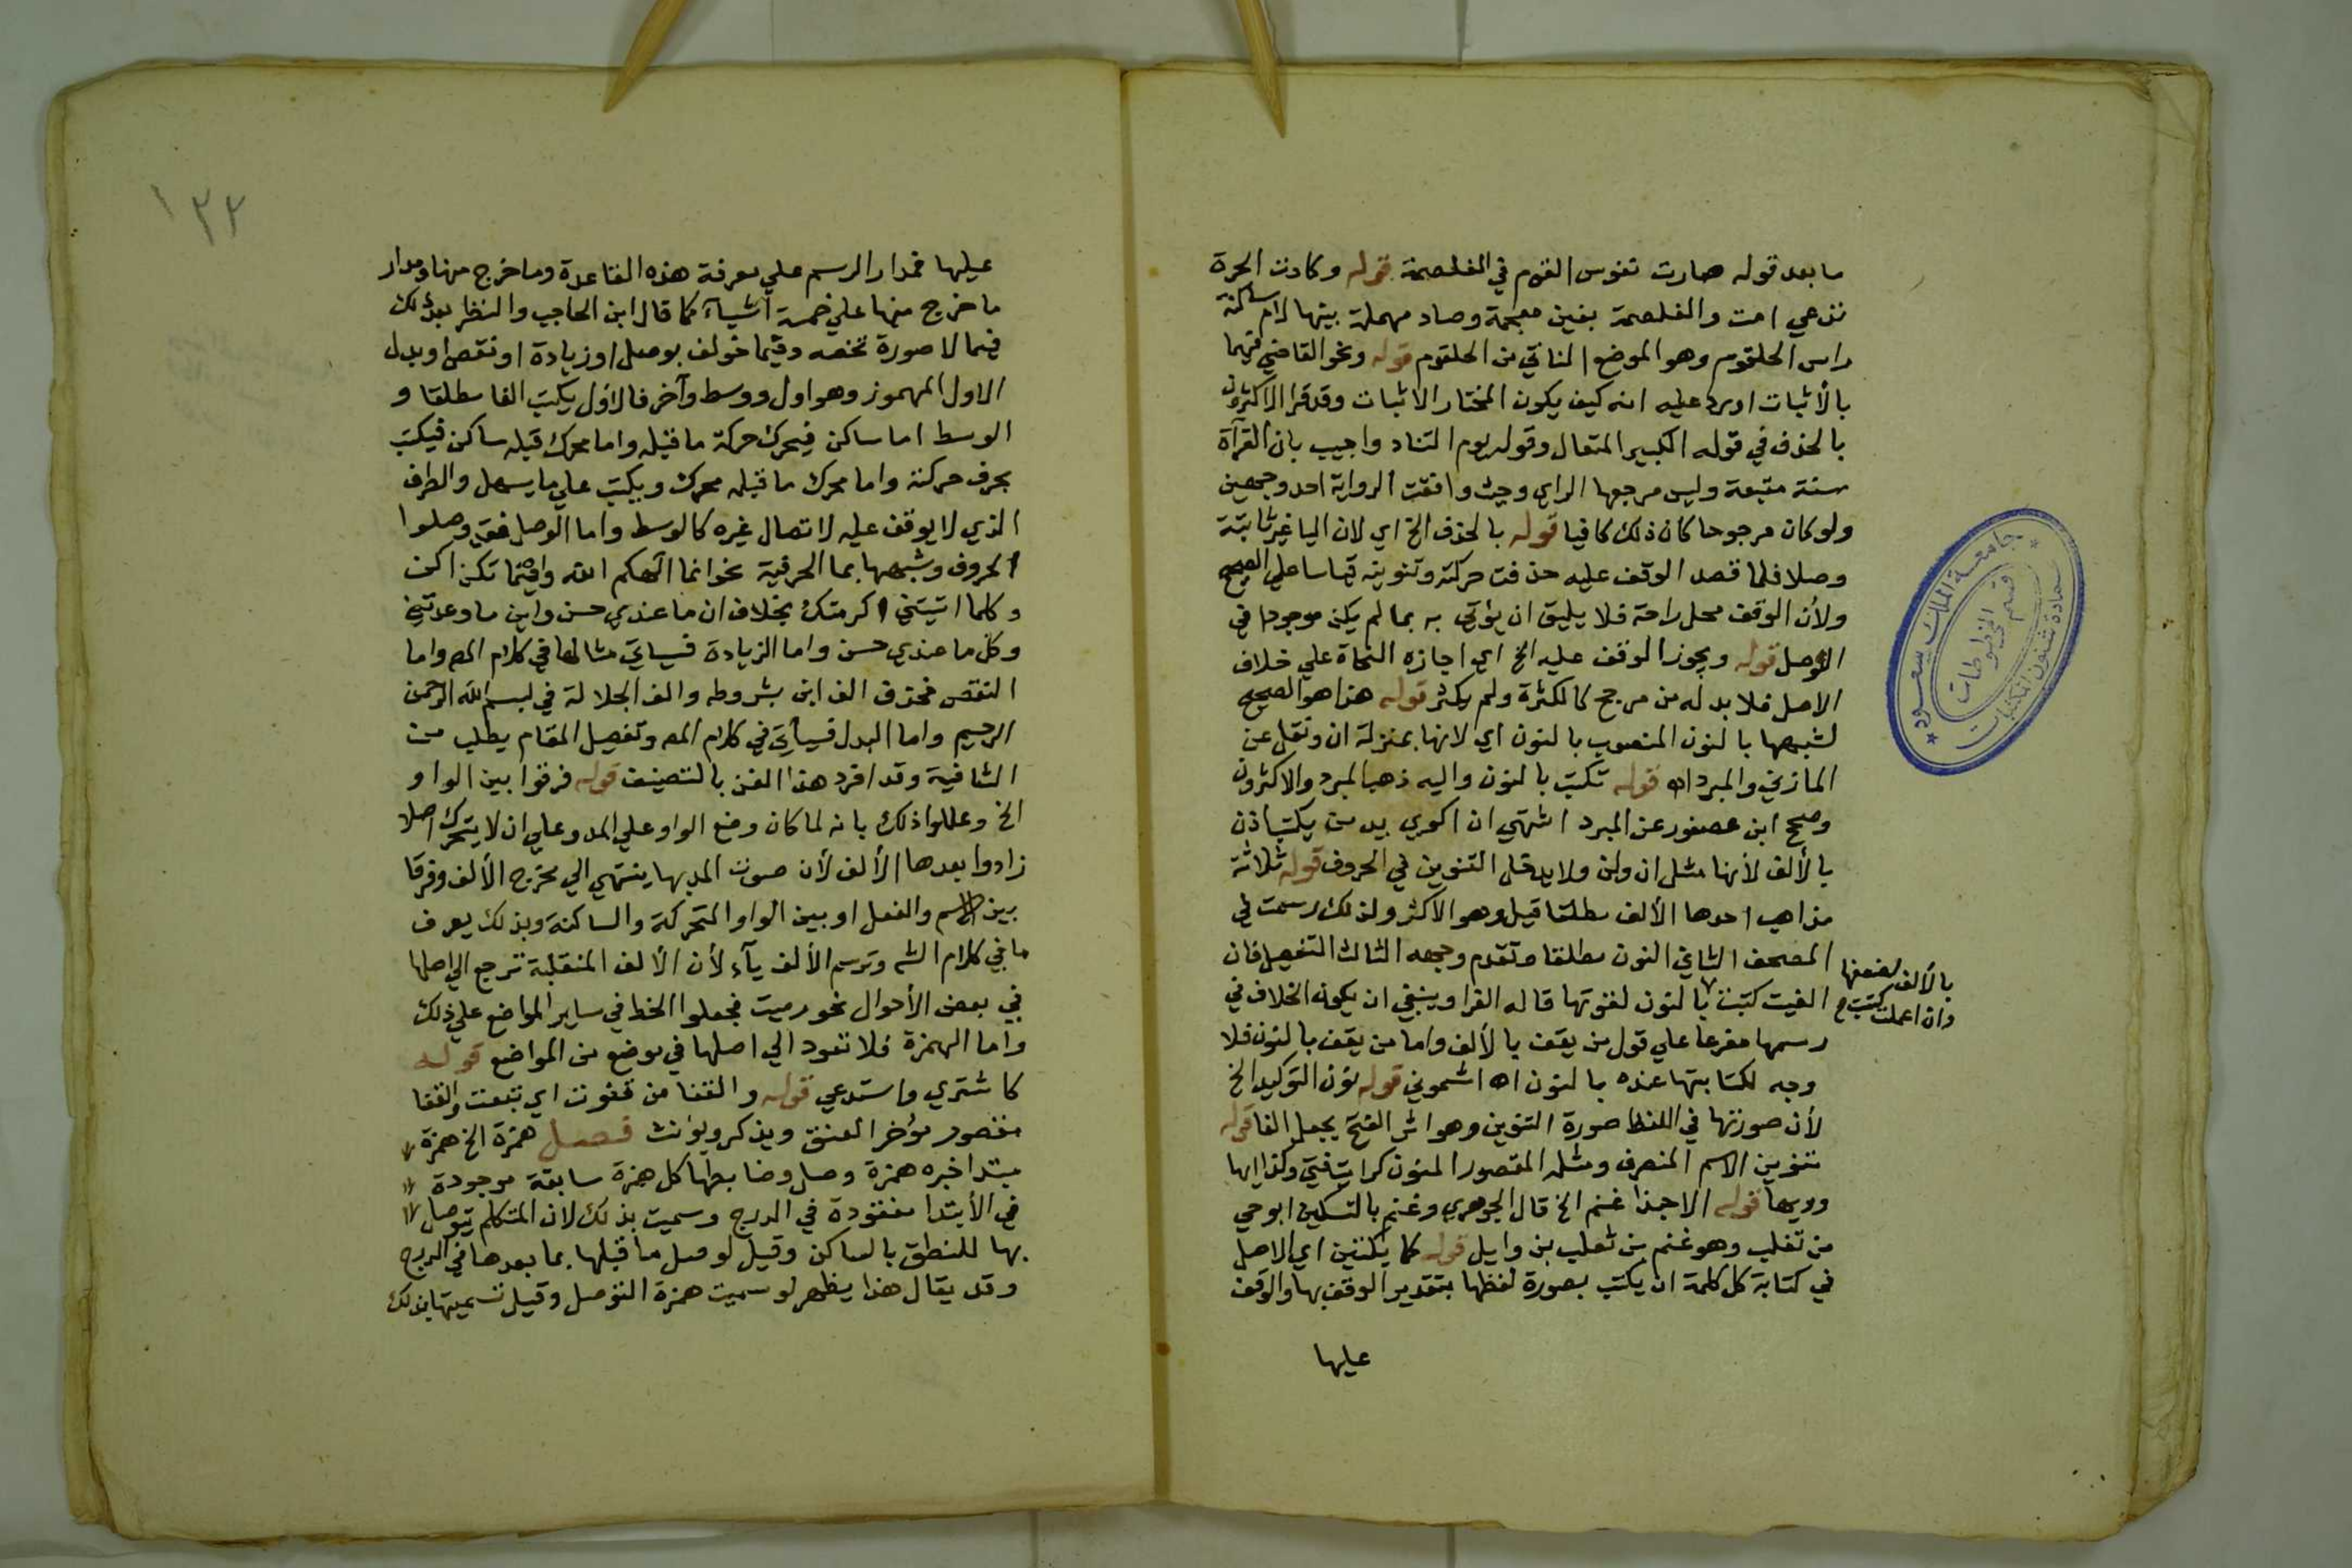 ما بعد قوله صارت نفوس القوم في الغلصمة قوله وكادت الحرة
تدعي امت والغلصمة بغين معجمة وصاد مهملة بينها لام ساكنة
راس الحلقوم وهو الموضع الناتي من الحلقوم قوله ونحو القاضي فيهما
بالأثبات اورد عليه انه كيف يكون المختار الاثبات وقد قرا الاكثرون
بالحذف في قوله الكبير المتعال وقوله يوم التناد واجيب بان القرآة
سنة متبعة وليس مرجعها الراي وحيث وافقت الرواية احد وجهين
ولو كان مرجوحا كان ذلك كافيا قوله بالحذف الخ اي لان اليا غير ثابتة
وصلا فلما قصد الوقف عليه حذفت حركته وتنوينه قياسا علي الصحيح
ولأن الوقف محل راحة فلا يليق ان يؤتي به بما لم يكن موجودا في
الوصل قوله ويجوز الوقف عليه الخ اي اجازه النحاة علي خلاف
الاصل فلا بد له من مرجح كالكثرة ولم يكثر قوله هذا هو الصحيح
لشبهها بالنون المنصوب بالنون اي لانها بمنزلة ان ونقل عن
المازني والمبرد اه قوله تكتب بالنون واليه ذهب المبرد والاكثرون
وصحح ابن عصفور عن المبرد اشتهي ان اكوي يد من يكتب اذن
بالألف لأنها مثل ان ولن ولا يدخل التنوين في الحروف قوله ثلاثة
مذاهب احدها الألف مطلقا قيل وهو الاكثر ولذلك رسمت في
المصحف الثاني النون مطلقا وتقدم وجهه الثالث التفصيل فان
الغيت كتبت بالنون لقوتها قاله الفرا وينبغي ان يكون الخلاف في
بالألف لضعفها
وان اعملت كتبت
رسمها مفرعا علي قول من يقف بالألف واما من يقف بالنون فلا
وجه لكتابتها عنده بالنون اه اشموني قوله نون التوكيد الخ
لأن صورتها في اللفظ صورة التنوين وهو اثر الفتح يجعل الفا قوله
تنوين الاسم المنصرف ومثله المقصور المنون كرايت فتي وكذا ايها
وويها قوله الا حبذا غنم الخ قال الجوهري وغنم بالتسكين ابو حي
من تغلب وهو غنم بن ثعلب بن وايل قوله كما يكتبن اي الاصل
في كتابة كل كلمة ان يكتب بصورة لفظها بتقدير الوقف بها والوقف
عليها
جامعة الملك سعود
قسم المخطوطات
عمادة شئون المكتبات
١٣٢
عليها فمدار الرسم علي معرفة هذه القاعدة وما خرج منها ومدار
ما خرج منها علي خمسة اشيآء كما قال ابن الحاجب والنظر بعد ذلك
فيما لا صورة تخصه وفيما خولف بوصل او زيادة او نقص او بدل
الاول المهموز وهو اول ووسط وآخر فالاول يكتب الفا مطلقا و
الوسط اما ساكن فيحرك حركة ما قبله واما محرك قبله ساكن فيكتب
بحرف حركته واما محرك ما قبله محرك ويكتب علي ما يسهل والطرف
الذي لا يوقف عليه لاتصال غيره كالوسط واما الوصل فقد وصلوا
الحروف وشبهها بما الحرفية نحو انما الهكم الله واينما تكن اكن
وكلما اتيتني اكرمتك بخلاف ان ما عندي حسن واين ما وعدتني
وكل ما عندي حسن واما الزيادة فسياتي مثالها في كلام المص واما
النقص فحذف الف ابن بشروطه والف الجلالة في بسم الله الرحمن
الرحيم واما البدل فسيأتي في كلام المص وتفصيل المقام يطلب من
الشافية وقد افرد هذا الفن بالتصنيف قوله فرقوا بين الواو
الخ وعللوا ذلك بانه لما كان وضع الواو علي المد وعلي ان لا يتحرك اصلا
زادوا بعدها الألف لأن صوت المد بها ينتهي الي مخرج الألف وفرقا
بين الاسم والفعل او بين الواو المتحركة والساكنة وبذلك يعرف
ما في كلام الش وترسم الألف يآء لأن الألف المنقلبة ترجع الي اصلها
في بعض الأحوال نحو رميت فجعلوا الخط في ساير المواضع علي ذلك
واما الهمزة فلا تعود الي اصلها في موضع من المواضع قوله
كاشتري واستدعي قوله والقفا من قفوت اي تبعت والقفا
مقصور مؤخر العنق ويذكر ويؤنث فصل همزة الخ همزة
مبتدا خبره همزة وصل وضابطها كل همزة سابقة موجودة
في الأبتدا مفقودة في الدرج وسميت بذلك لان المتكلم يتوصل
بها للنطق بالساكن وقيل لوصل ما قبلها بما بعدها في الدرج
وقد يقال هذا يظهر لو سميت همزة التوصل وقيل تسميتها بذلك